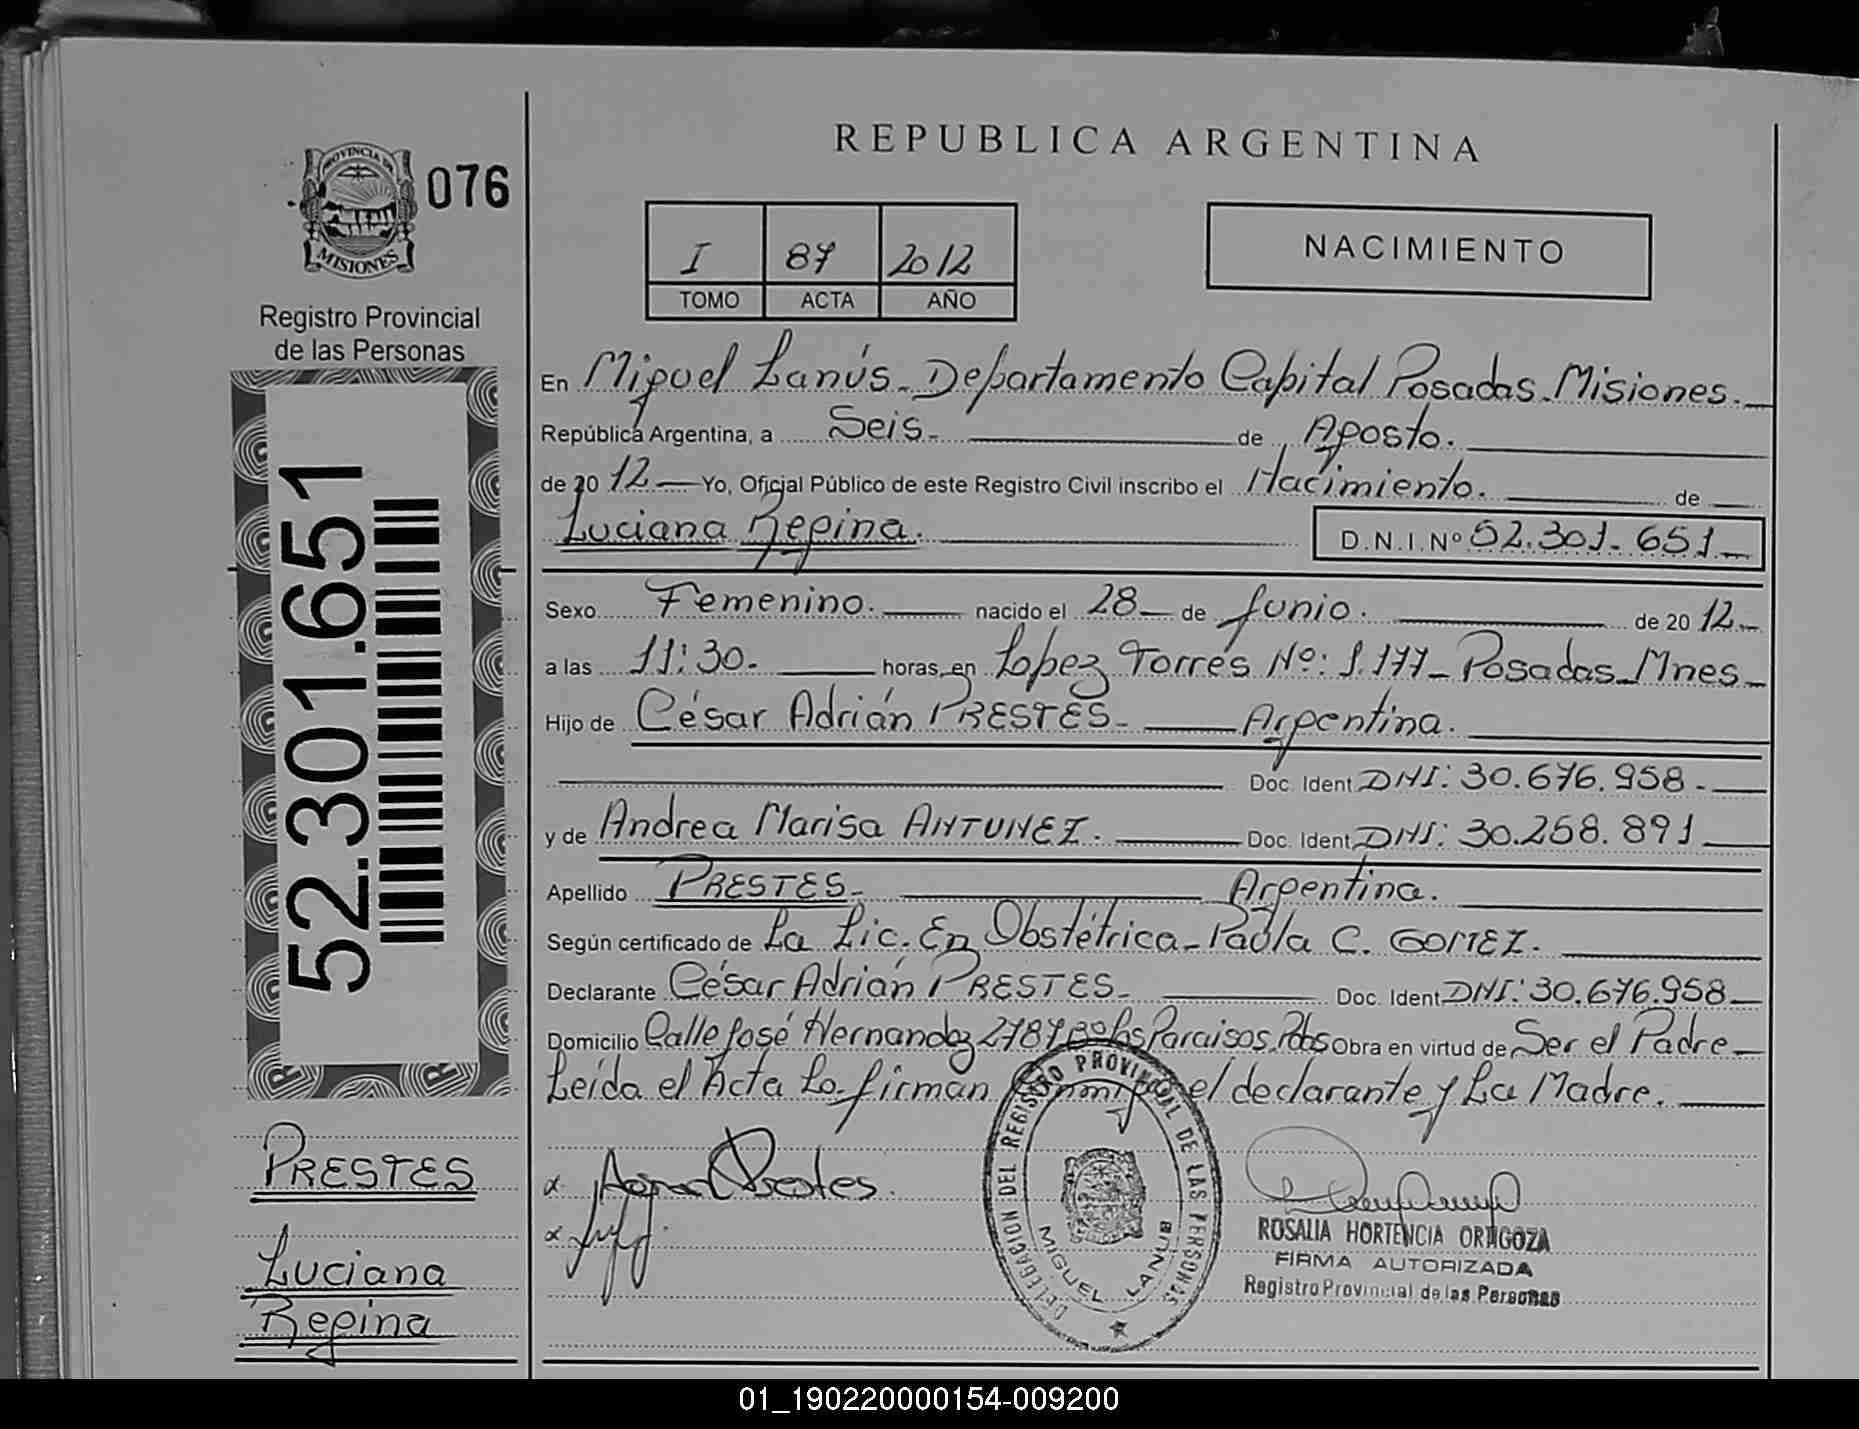 REPUBLICA ARGENTINA
PROVINCIA DE
MISIONES
076
Registro Provincial
de las Personas
I 87 2012
TOMO ACTA AÑO
NACIMIENTO
En Miguel Lanús - Departamento Capital Posadas - Misiones.
República Argentina, a Seis de Agosto.
de 2012 Yo, Oficial Público de este Registro Civil inscribo el Nacimiento. de
Luciana Regina.
D.N.I.Nº 52.301.651
Sexo Femenino. nacido el 28 de Junio. de 2012
a las 11:30. horas, en Lopez Torres Nº: 1.177 - Posadas - Mnes
Hijo de César Adrián PRESTES - Argentina.
Doc. Ident. DNI: 30.676.958 -
y de Andrea Marisa ANTUNEZ. Doc. Ident. DNI: 30.258.891
Apellido PRESTES - Argentina.
Según certificado de La Lic. En Obstétrica - Paola C. GOMEZ.
Declarante César Adrián PRESTES - Doc. Ident. DNI: 30.676.958
Domicilio Calle José Hernandez 2787 Bº Los Paraisos. Pdas Obra en virtud de Ser el Padre -
Leída el Acta La firman Conmigo el declarante y La Madre.
52.301.651
PRESTES
Luciana
Regina
Prestes
DELEGACION DEL REGISTRO PROVINCIAL DE LAS PERSONAS
MIGUEL LANUS
ROSALIA HORTENCIA ORTIGOZA
FIRMA AUTORIZADA
Registro Provincial de las Personas
01_190220000154-009200